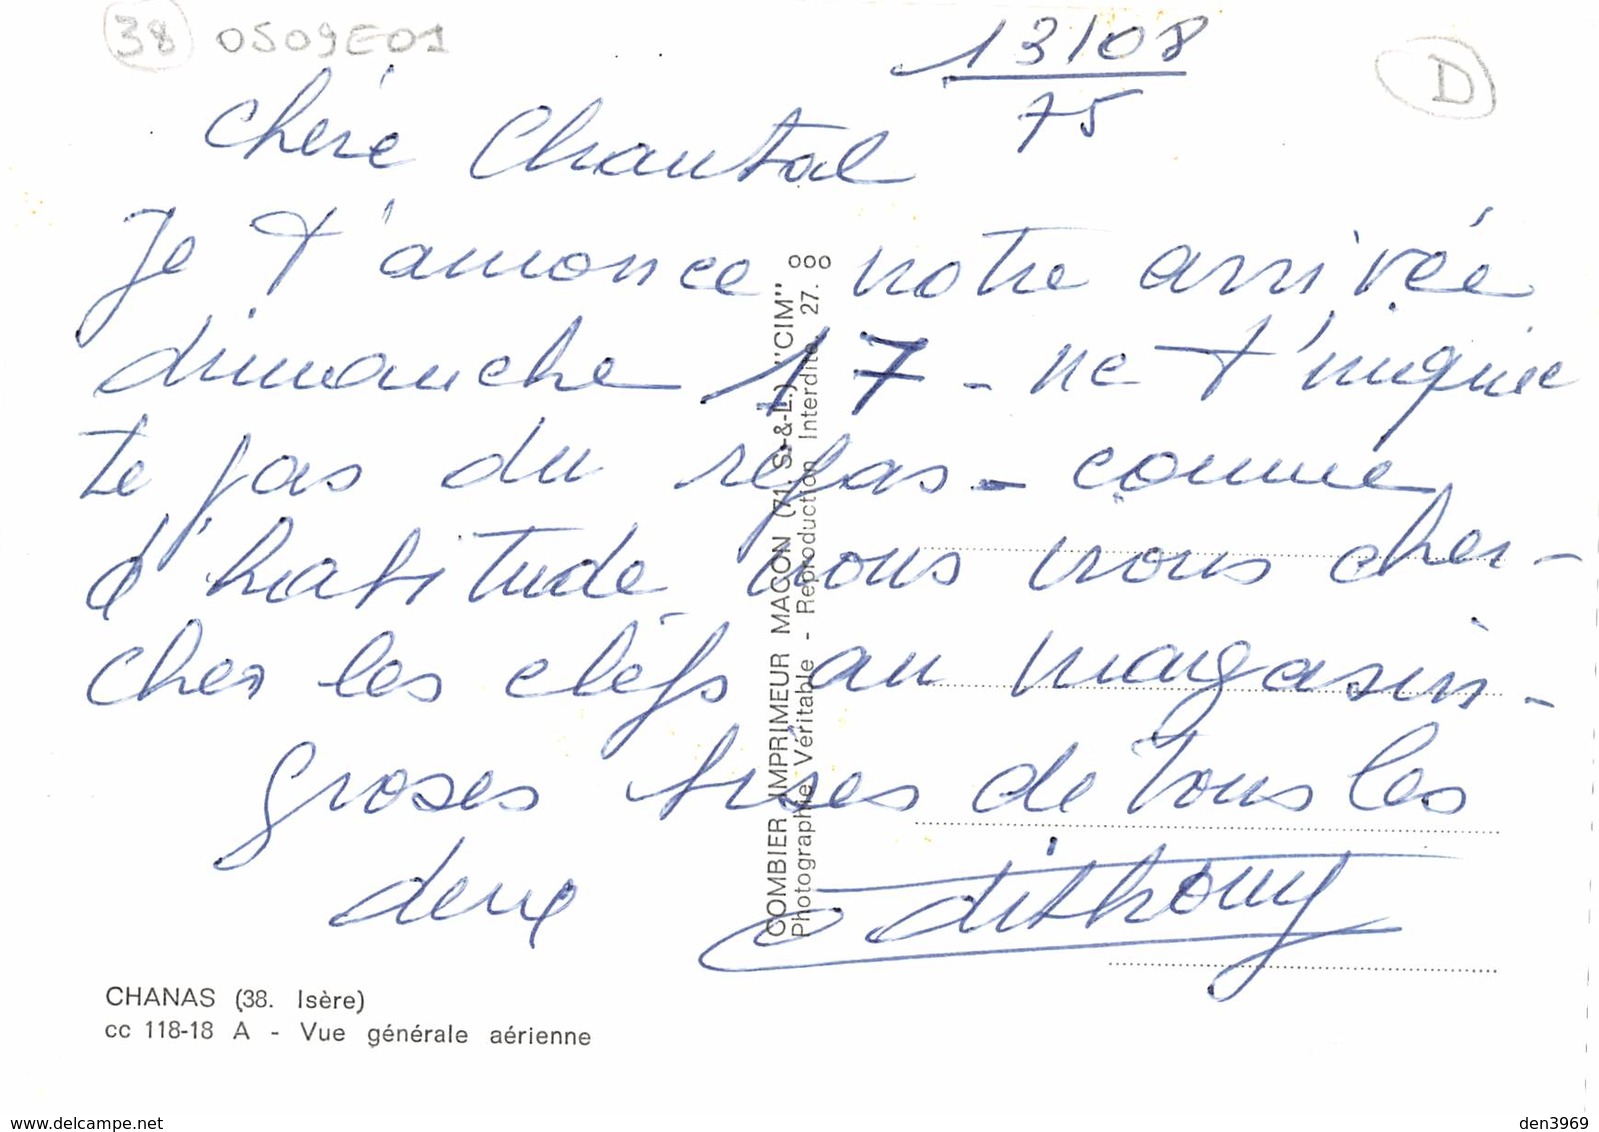 38 0509E01
13/08
75
D
chère Chantal
Je t'annonce notre arrivée
dimanche 17 - ne t'inquiè
te pas du repas - comme
d'habitude nous irons cher-
cher les cléfs au magasin -
groses bises de tous les
deux
COMBIER IMPRIMEUR MACON (71. S.-&-L.) "CIM"
Photographie Véritable - Reproduction Interdite. 27.
CHANAS (38. Isère)
cc 118-18 A - Vue générale aérienne
http://www.delcampe.net
den3969